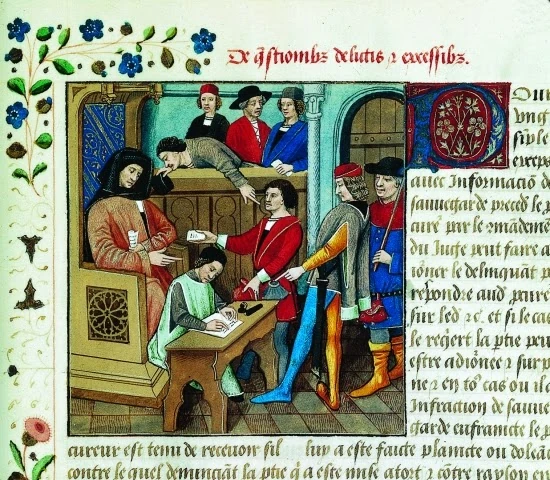 De q̄stionibꝫ delictis ⁊ excessibꝫ.
Our
vng
siple
excep
avec Informaciō de
sauvegarde preced le p
cure par le
du Juge peut faire a
iōner le delinquāt p
respondre aud pcure
sur led ⁊c. et si le cas
le reqiert la ptie peu
estre adiōnee ⁊ sur p
ne ⁊ en cas ou il e
Infraction de sauve
garde enfraincte le p
cureur est tenu de recevoir sil luy a este faicte plaincte ou doleāc
contre le quel denunciāt la ptie q̄ a este mise a tort ⁊ cōtre rayson en